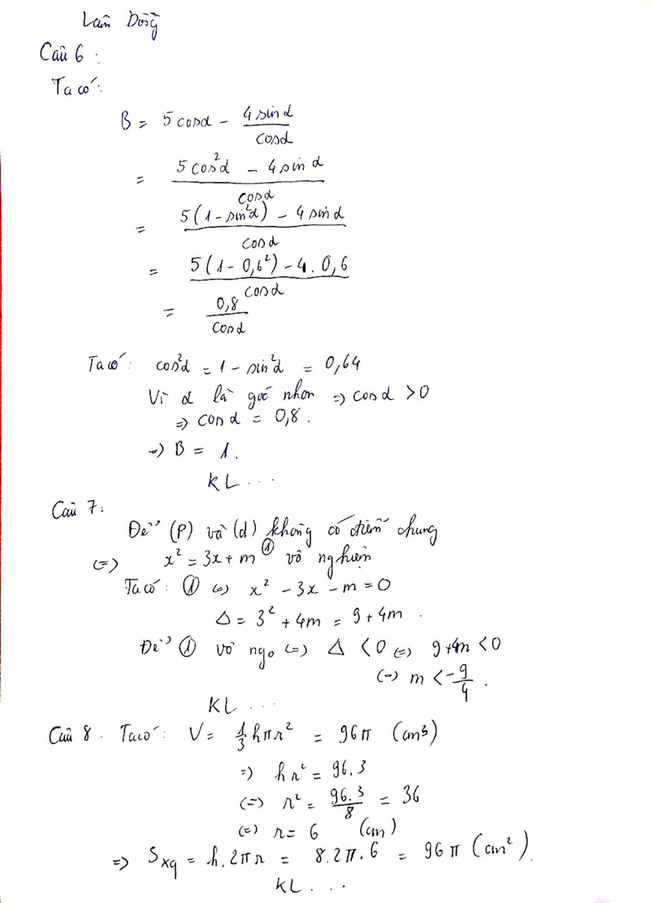 Lâm Đồng
Câu 6 :
Ta có :
B = 5 cosα - 4 sinα / cosα
= 5 cos²α - 4 sinα / cosα
= 5(1 - sin²α) - 4 sinα / cosα
= 5(1 - 0,6²) - 4 . 0,6 / cosα
= 0,8 / cosα
Ta có : cos²α = 1 - sin²α = 0,64
Vì α là góc nhọn => cosα > 0
=> cosα = 0,8 .
=> B = 1 .
KL ...
Câu 7 :
Để (P) và (d) không có điểm chung
(=) x² = 3x + m ① vô nghiệm
Ta có : ① (=) x² - 3x - m = 0
Δ = 3² + 4m = 9 + 4m .
Để ① vô ngo (=) Δ < 0 (=) 9 + 4m < 0
(=) m < -9/4 .
KL ...
Câu 8 . Ta có : V = 1/3 hπr² = 96π (cm³)
=) hr² = 96.3
(=) r² = 96.3/8 = 36
(=) r = 6 (cm)
=> Sxq = h.2πr = 8.2π.6 = 96π (cm²).
KL ...